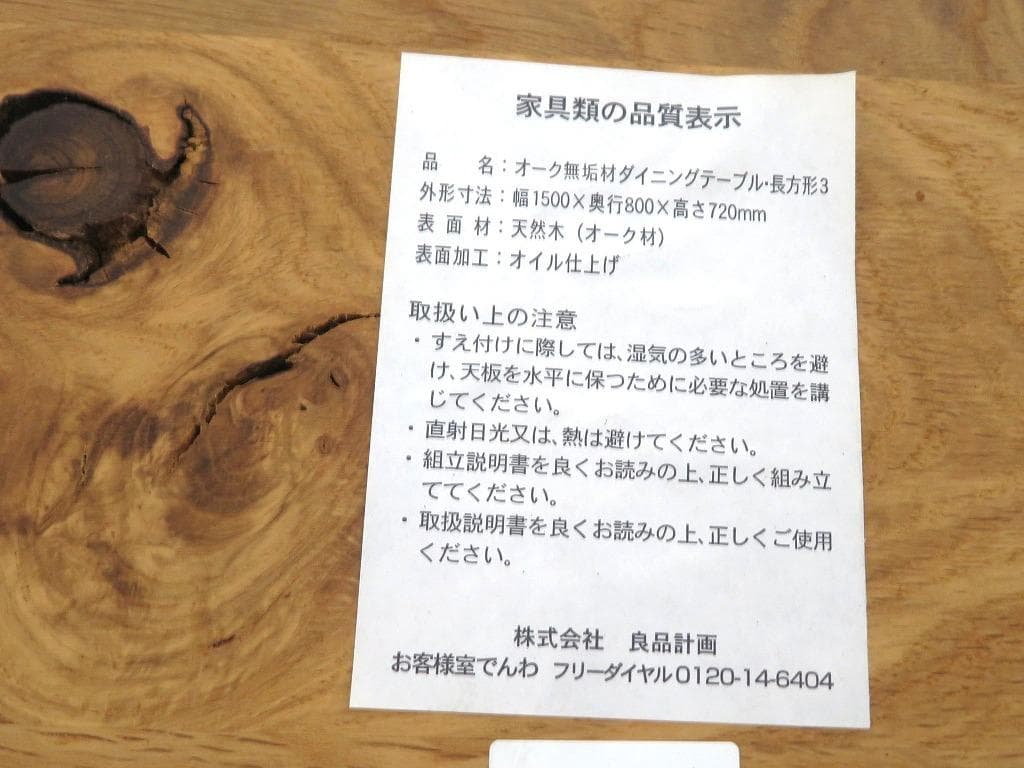 家具類の品質表示
品　　名：オーク無垢材ダイニングテーブル・長方形3
外形寸法：幅1500×奥行800×高さ720mm
表 面 材：天然木（オーク材）
表面加工：オイル仕上げ
取扱い上の注意
・すえ付けに際しては、湿気の多いところを避
け、天板を水平に保つために必要な処置を講
じてください。
・直射日光又は、熱は避けてください。
・組立説明書を良くお読みの上、正しく組み立
ててください。
・取扱説明書を良くお読みの上、正しくご使用
ください。
株式会社　良品計画
お客様室でんわ　フリーダイヤル0120-14-6404